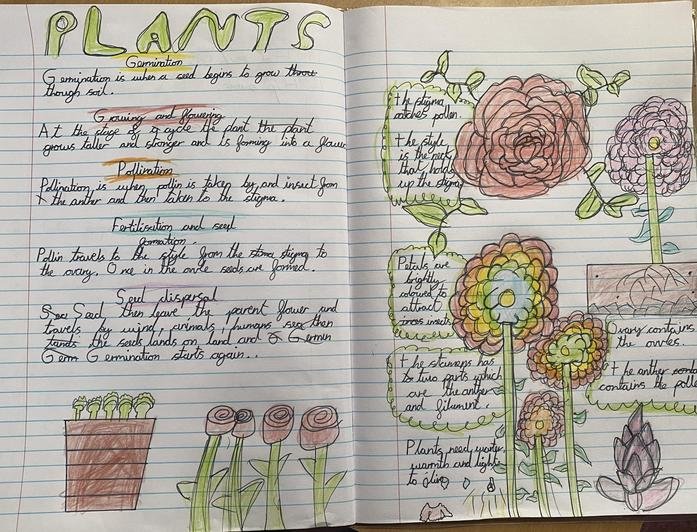 PLANTS
Germination
Germination is when a seed begins to grow throw
though soil.
Growing and flowering
At the stage of a cycle the plant the plant
grows taller and stronger and is forming into a flower
Pollination
Pollination is when pollin is taken by and insect from
the anther and then taken to the stigma.
Fertilisation and seed
formation.
Pollin travels to the style from the stoma stigma to
the ovary. Once in the ovule seeds are formed.
Seed dispersal
See Seed then leave the parent flower and
travels by wind, animals, humans sex then
the seeds lands on land and Germin
Germ Germination starts again..
the stigma
catches pollen.
the style
is the neck
that holds
up the stigma
Petals are
brightly
coloured to
attract
insects
the stamens has
to two parts which
are the anther
and filument.
Plants need water,
warmth and light
to live
Ovary contains
the ovules.
the anther
contains the polle